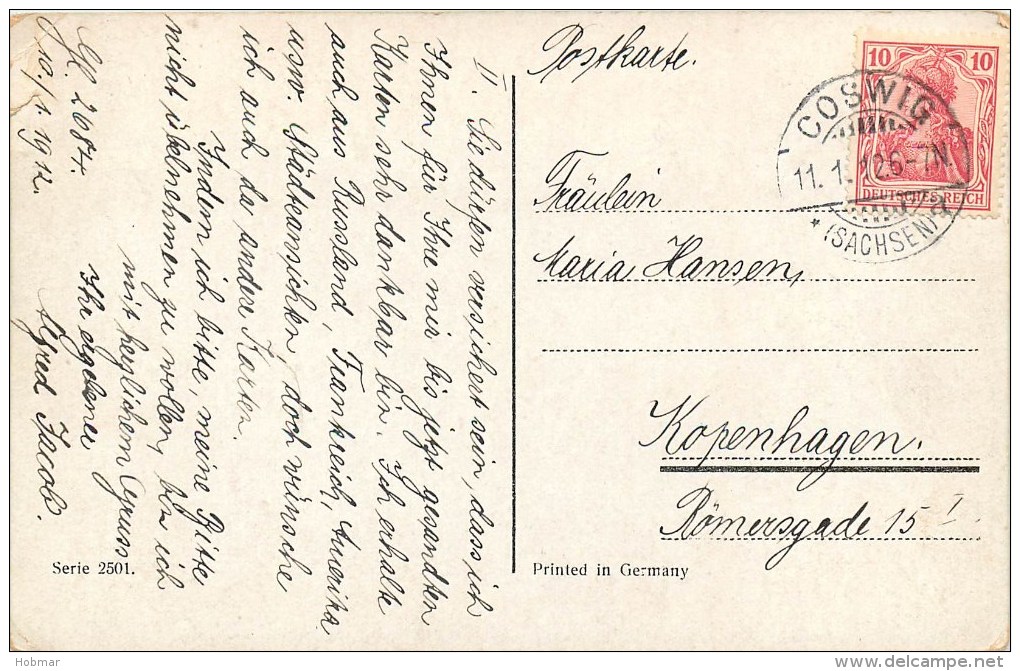 II. Sie dürfen versichert sein, dass ich
Ihnen für Ihre mir bis jetzt gesandten
Karten sehr dankbar bin. Ich erhalte
auch aus Russland, Frankreich, Amerika
usw. Städteansichten, doch wünsche
ich auch da andere Karten.
Indem ich bitte, meine Bitte
nicht übelnehmen zu wollen, bin ich
mit herzlichem Gruss
Ihr ergebener
Jacob.
Gl. 2684.
10./1. 1912.
Serie 2501.
Postkarte.
10 10
DEUTSCHES REICH
COSWIG
11. 1. 12. 6-7N.
* (SACHSEN) a
Fräulein
Maria Hansen,
Kopenhagen.
Römersgade 15 I
Printed in Germany
Hobmar
delcampe.net